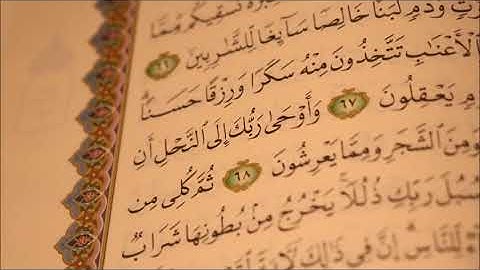 ـبْرَةً نُّسْقِيكُم مِّمَّا
ـرْثٍ وَدَمٍ لَّبَنًا خَالِصًا سَآئِغًا لِّلشَّٰرِبِينَ ٦٦
ٱلْأَعْنَٰبِ تَتَّخِذُونَ مِنْهُ سَكَرًا وَرِزْقًا حَسَنًا
ـمٍ يَعْقِلُونَ ٦٧ وَأَوْحَىٰ رَبُّكَ إِلَى ٱلنَّحْلِ أَنِ
وَمِنَ ٱلشَّجَرِ وَمِمَّا يَعْرِشُونَ ٦٨ ثُمَّ كُلِى مِن
سُبُلَ رَبِّكِ ذُلُلًا يَخْرُجُ مِنۢ بُطُونِهَا شَرَابٌ
لِّلنَّاسِ إِنَّ فِى ذَٰلِكَ لَـَٔايَةً